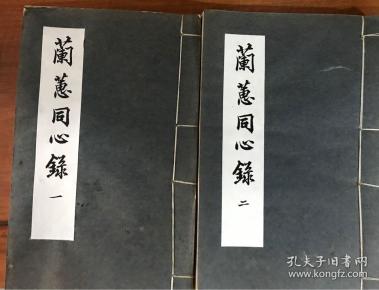 蘭蕙同心錄 一
蘭蕙同心錄 二
孔夫子旧书网
www.kongfz.com